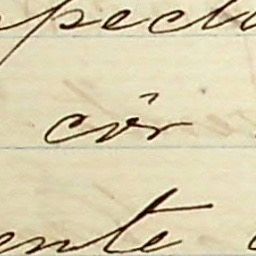 specta
côr
ente